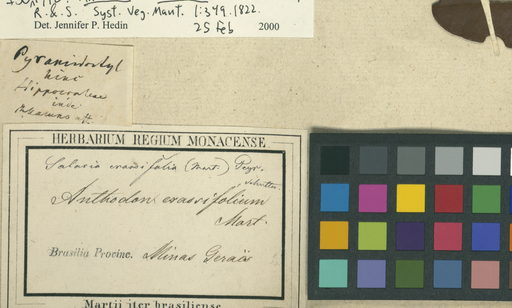 R. & S. Syst. Veg. Mant. 1:349. 1822.
Det. Jennifer P. Hedin 25 Feb 2000
hinc
inde
HERBARIUM REGIUM MONACENSE
Salacia crassifolia (Mart.) Peyr.
Anthodon crassifolium
Mart.
Brasilia Provinc. Minas Geraës
Martii iter brasiliense